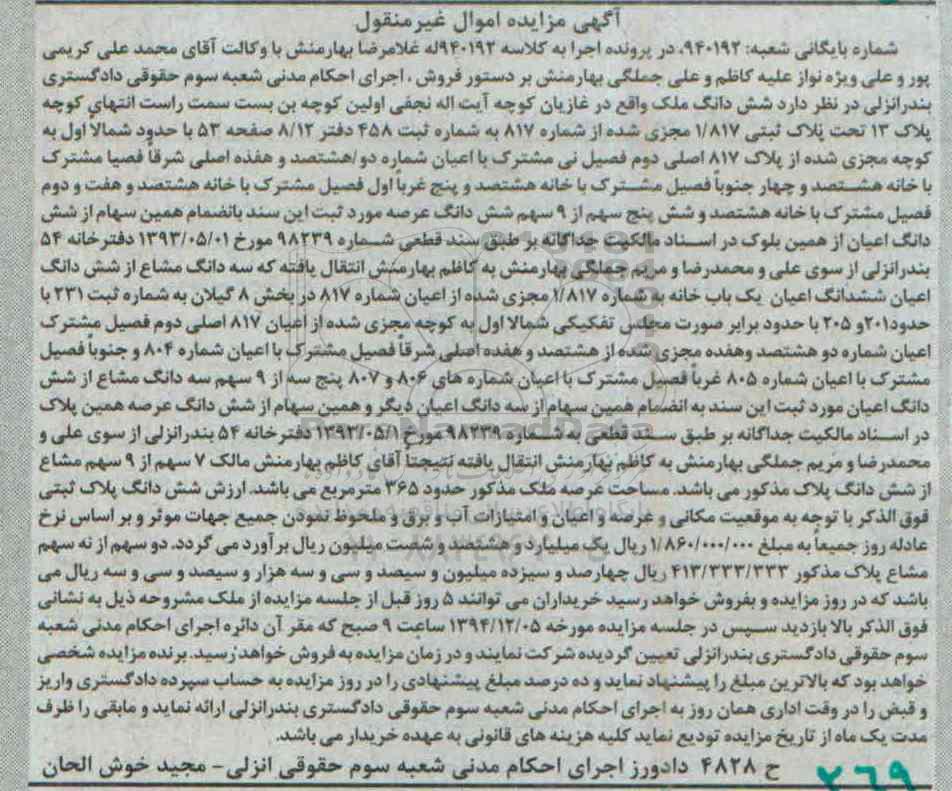 آگهی مزایده اموال غیرمنقول
شماره بایگانی شعبه: ۹۴۰۱۹۲، در پرونده اجرا به کلاسه ۹۴۰۱۹۲له غلامرضا بهارمنش با وکالت آقای محمد علی کریمی
پور و علی ویژه نواز علیه کاظم و علی جملگی بهارمنش بر دستور فروش ، اجرای احکام مدنی شعبه سوم حقوقی دادگستری
بندرانزلی در نظر دارد شش دانگ ملک واقع در غازیان کوچه آیت اله نجفی اولین کوچه بن بست سمت راست انتهای کوچه
پلاک ۱۳ تحت پلاک ثبتی ۱/۸۱۷ مجزی شده از شماره ۸۱۷ به شماره ثبت ۴۵۸ دفتر ۸/۱۲ صفحه ۵۳ با حدود شمالا اول به
کوچه مجزی شده از پلاک ۸۱۷ اصلی دوم فصیل نی مشترک با اعیان شماره دو/هشتصد و هفده اصلی شرقاً فصیا مشترک
با خانه هشتصد و چهار جنوباً فصیل مشترک با خانه هشتصد و پنج غرباً اول فصیل مشترک با خانه هشتصد و هفت و دوم
فصیل مشترک با خانه هشتصد و شش پنج سهم از ۹ سهم شش دانگ عرصه مورد ثبت این سند بانضمام همین سهام از شش
دانگ اعیان از همین بلوک در اسناد مالکیت جداگانه بر طبق سند قطعی شماره ۹۸۲۳۹ مورخ ۱۳۹۳/۰۵/۰۱ دفترخانه ۵۴
بندرانزلی از سوی علی و محمدرضا و مریم جملگی بهارمنش به کاظم بهارمنش انتقال یافته که سه دانگ مشاع از شش دانگ
اعیان ششدانگ اعیان یک باب خانه به شماره ۱/۸۱۷ مجزی شده از اعیان شماره ۸۱۷ در بخش ۸ گیلان به شماره ثبت ۲۳۱ با
حدود۲۰۱و ۲۰۵ با حدود برابر صورت مجلس تفکیکی شمالا اول به کوچه مجزی شده از اعیان ۸۱۷ اصلی دوم فصیل مشترک
اعیان شماره دو هشتصد وهفده مجزی شده از هشتصد و هفده اصلی شرقاً فصیل مشترک با اعیان شماره ۸۰۴ و جنوباً فصیل
مشترک با اعیان شماره ۸۰۵ غرباً فصیل مشترک با اعیان شماره های ۸۰۶ و ۸۰۷ پنج سه از ۹ سهم سه دانگ مشاع از شش
دانگ اعیان مورد ثبت این سند به انضمام همین سهام از سه دانگ اعیان دیگر و همین سهام از شش دانگ عرصه همین پلاک
در اسناد مالکیت جداگانه بر طبق سند قطعی به شماره ۹۸۲۳۹ مورخ ۱۳۹۳/۰۵/۱ دفترخانه ۵۴ بندرانزلی از سوی علی و
محمدرضا و مریم جملگی بهارمنش به کاظم بهارمنش انتقال یافته نتیجتا آقای کاظم بهارمنش مالک ۷ سهم از ۹ سهم مشاع
از شش دانگ پلاک مذکور می باشد. مساحت عرصه ملک مذکور حدود ۳۶۵ مترمربع می باشد. ارزش شش دانگ پلاک ثبتی
فوق الذکر با توجه به موقعیت مکانی و عرصه و اعیان و امتیازات آب و برق و ملحوظ نمودن جمیع جهات موثر و بر اساس نرخ
عادله روز جمیعاً به مبلغ ۱/۸۶۰/۰۰۰/۰۰۰ ریال یک میلیارد و هشتصد و شصت میلیون ریال برآورد می گردد. دو سهم از نه سهم
مشاع پلاک مذکور ۴۱۳/۳۳۳/۳۳۳ ریال چهارصد و سیزده میلیون و سیصد و سی و سه هزار و سیصد و سی و سه ریال می
باشد که در روز مزایده و بفروش خواهد رسید خریداران می توانند ۵ روز قبل از جلسه مزایده از ملک مشروحه ذیل به نشانی
فوق الذکر بالا بازدید سپس در جلسه مزایده مورخه ۱۳۹۴/۱۲/۰۵ ساعت ۹ صبح که مقر آن دائره اجرای احکام مدنی شعبه
سوم حقوقی دادگستری بندرانزلی تعیین گردیده شرکت نمایند و در زمان مزایده به فروش خواهد رسید. برنده مزایده شخصی
خواهد بود که بالاترین مبلغ را پیشنهاد نماید و ده درصد مبلغ پیشنهادی را در روز مزایده به حساب سپرده دادگستری واریز
و قبض را در وقت اداری همان روز به اجرای احکام مدنی شعبه سوم حقوقی دادگستری بندرانزلی ارائه نماید و مابقی را ظرف
مدت یک ماه از تاریخ مزایده تودیع نماید کلیه هزینه های قانونی به عهده خریدار می باشد.
ح ۴۸۲۸ دادورز اجرای احکام مدنی شعبه سوم حقوقی انزلی - مجید خوش الحان
۲۶۹